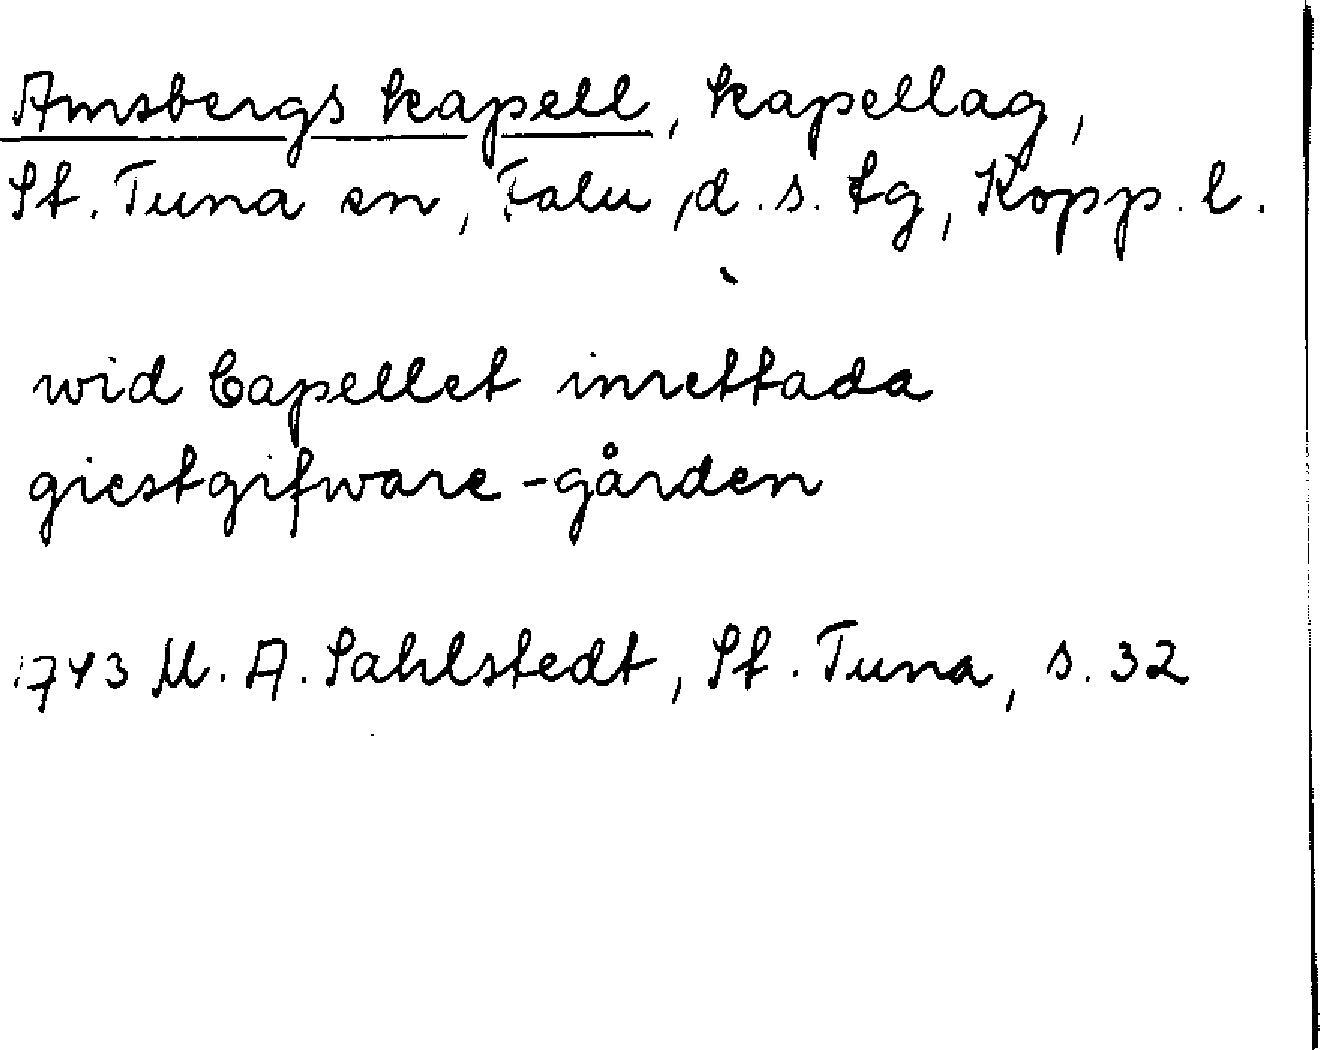 Amsbergs kapell, kapellag,
St. Tuna sn, Falu d.s. tg, Kopp. l.
wid Capellet inrettada
giestgifware-gården
1743 M. A. Sahlstedt, St. Tuna, s. 32